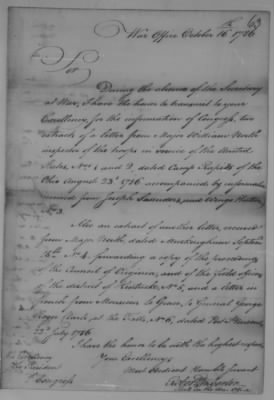 63
War Office October 16th 1786
Sir
During the absence of the Secretary
at War, I have the honor to transmit to your
Excellency for the information of Congress, two
extracts of a letter from Major William North
inspector of the troops in service of the United
States, Nos 1 and 2, dated Camp Rapids of the
Ohio August 23d 1786 accompanied by information
received from Joseph Saunders, and
No 3.
Also an extract of another letter, received
from Major North, dated Muskingham Septem
15th No 4. forwarding a copy of the proceedings
of the Council of Virginia, and of the field officers
of the district of Kentucke, No 5, and a letter in
french from Monsieur le Grace, to General George
Roger Clark at the Falls, No 6, dated Post
22d July 1786.
I have the honor to be with the highest respect,
Your Excellencys
Most Obedient Humble Servant
His Excellency
the President
of Congress
in the War Office